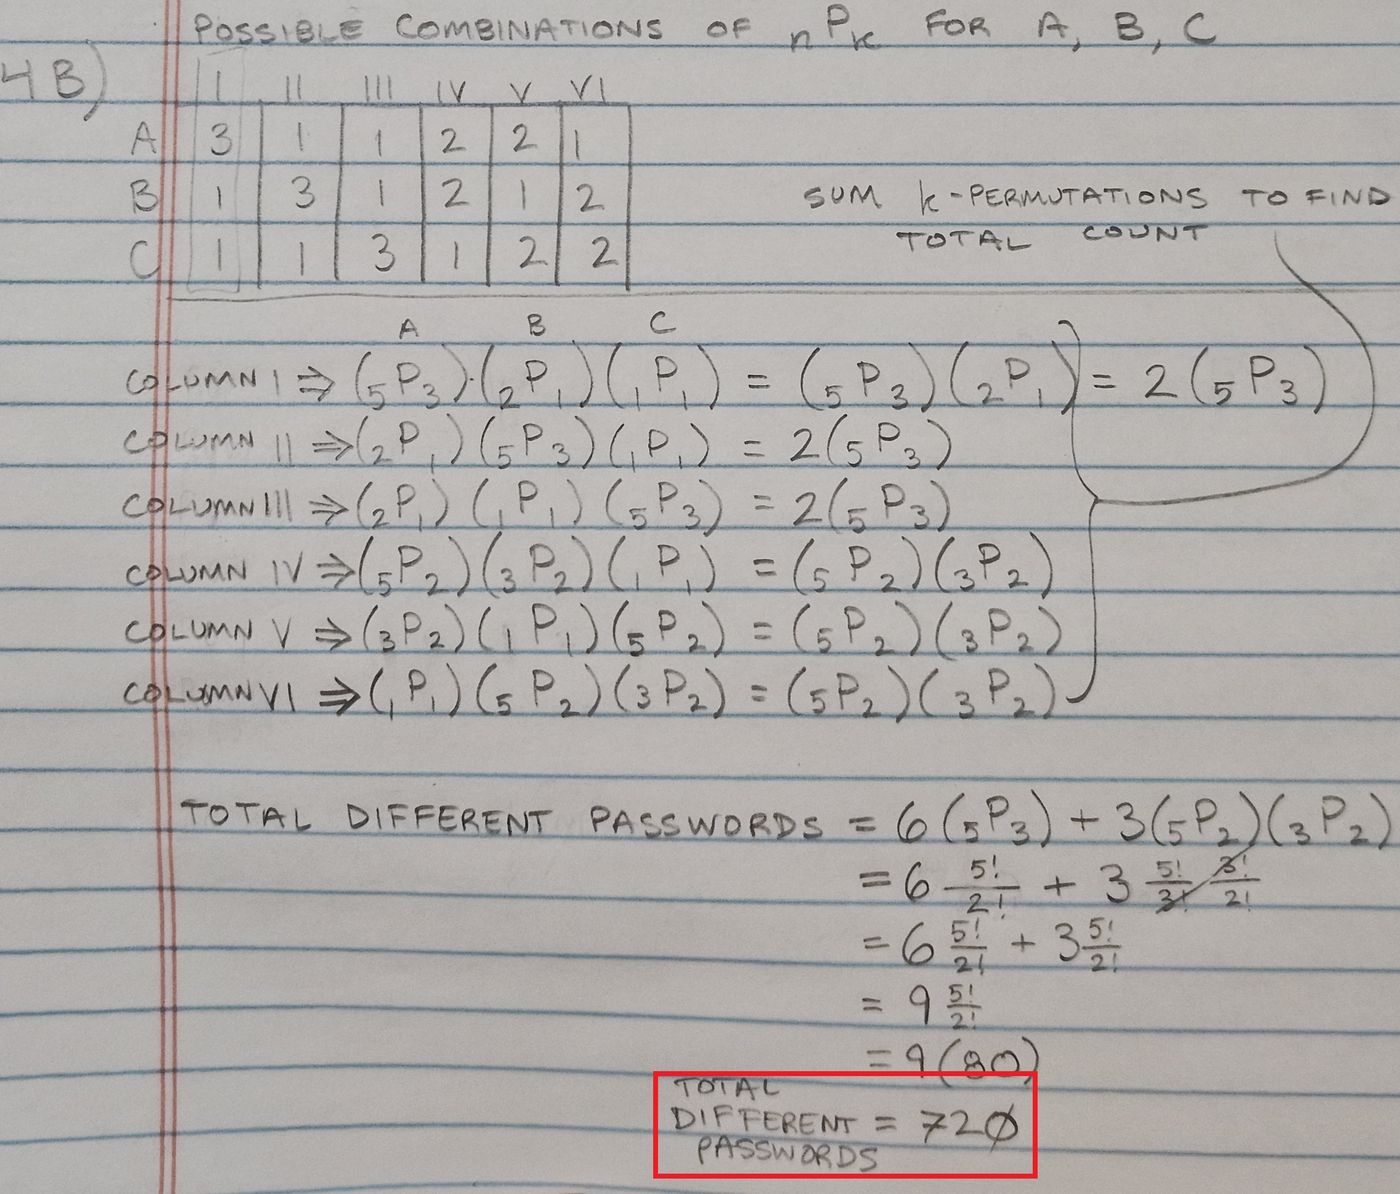 POSSIBLE COMBINATIONS OF nPk FOR A, B, C
4B)
I II III IV V VI
A 3 1 1 2 2 1
B 1 3 1 2 1 2
C 1 1 3 1 2 2
SUM k-PERMUTATIONS TO FIND
TOTAL COUNT
A B C
COLUMN I ⇒ (5P3)·(2P1)(1P1) = (5P3)(2P1) = 2(5P3)
COLUMN II ⇒ (2P1)(5P3)(1P1) = 2(5P3)
COLUMN III ⇒ (2P1)(1P1)(5P3) = 2(5P3)
COLUMN IV ⇒ (5P2)(3P2)(1P1) = (5P2)(3P2)
COLUMN V ⇒ (3P2)(1P1)(5P2) = (5P2)(3P2)
COLUMN VI ⇒ (1P1)(5P2)(3P2) = (5P2)(3P2)
TOTAL DIFFERENT PASSWORDS = 6(5P3) + 3(5P2)(3P2)
= 6 5!/2! + 3 5!/3! 3!/2!
= 6 5!/2! + 3 5!/2!
= 9 5!/2!
= 9(80)
TOTAL
DIFFERENT = 720
PASSWORDS